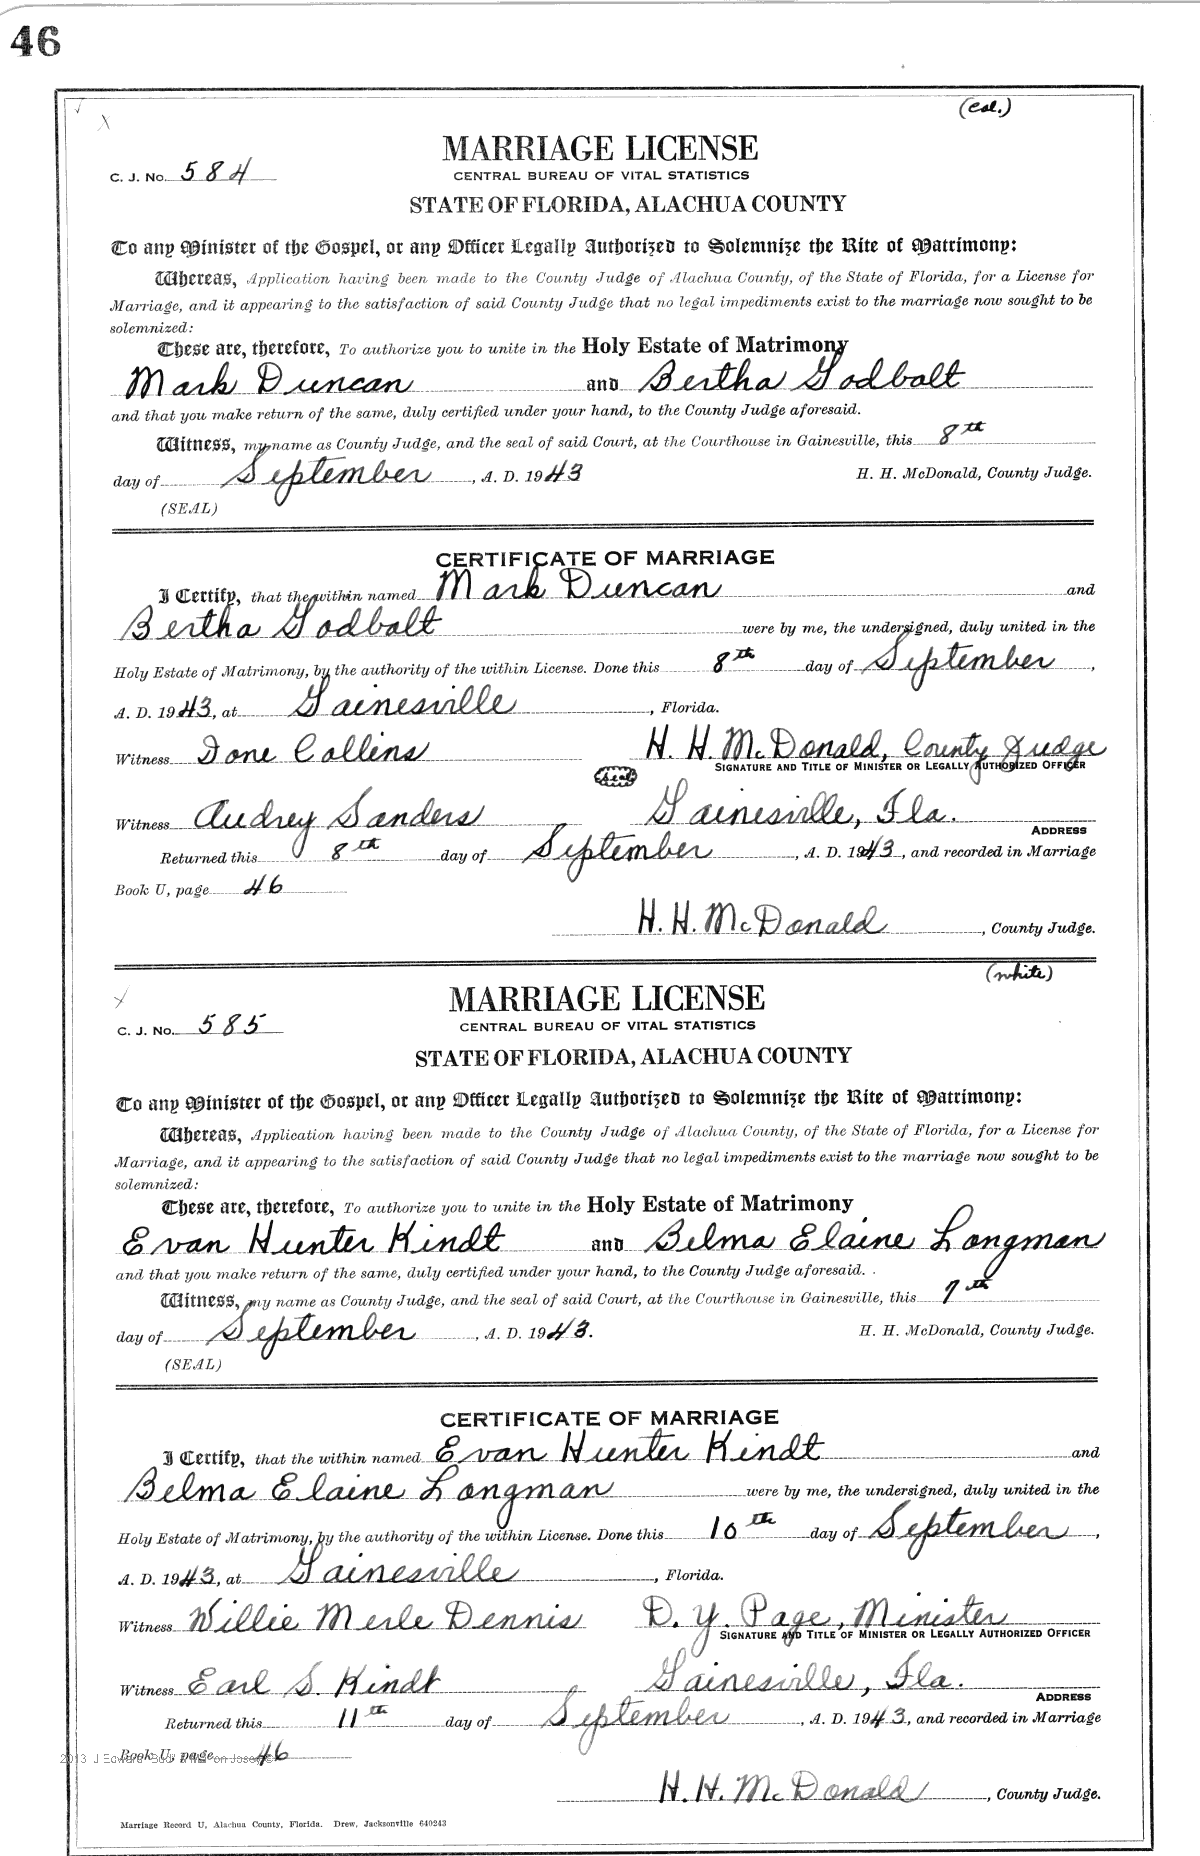 46
(col.)
MARRIAGE LICENSE
C. J. No. 584
CENTRAL BUREAU OF VITAL STATISTICS
STATE OF FLORIDA, ALACHUA COUNTY
To any Minister of the Gospel, or any Officer Legally Authorized to Solemnize the Rite of Matrimony:
Whereas, Application having been made to the County Judge of Alachua County, of the State of Florida, for a License for
Marriage, and it appearing to the satisfaction of said County Judge that no legal impediments exist to the marriage now sought to be
solemnized:
These are, therefore, To authorize you to unite in the Holy Estate of Matrimony
Mark Duncan and Bertha Godbolt
and that you make return of the same, duly certified under your hand, to the County Judge aforesaid.
Witness, my name as County Judge, and the seal of said Court, at the Courthouse in Gainesville, this 8th
day of September, A. D. 1943 H. H. McDonald, County Judge.
(SEAL)
CERTIFICATE OF MARRIAGE
I Certify, that the within named Mark Duncan and
Bertha Godbolt were by me, the undersigned, duly united in the
Holy Estate of Matrimony, by the authority of the within License. Done this 8th day of September,
A. D. 1943, at Gainesville, Florida.
Witness Ione Collins H. H. McDonald, County Judge
SIGNATURE AND TITLE OF MINISTER OR LEGALLY AUTHORIZED OFFICER
(seal)
Witness Audrey Sanders Gainesville, Fla.
ADDRESS
Returned this 8th day of September, A. D. 1943, and recorded in Marriage
Book U, page 46
H. H. McDonald, County Judge.
(white)
MARRIAGE LICENSE
C. J. No. 585
CENTRAL BUREAU OF VITAL STATISTICS
STATE OF FLORIDA, ALACHUA COUNTY
To any Minister of the Gospel, or any Officer Legally Authorized to Solemnize the Rite of Matrimony:
Whereas, Application having been made to the County Judge of Alachua County, of the State of Florida, for a License for
Marriage, and it appearing to the satisfaction of said County Judge that no legal impediments exist to the marriage now sought to be
solemnized:
These are, therefore, To authorize you to unite in the Holy Estate of Matrimony
Evan Hunter Kindt and Belma Elaine Longman
and that you make return of the same, duly certified under your hand, to the County Judge aforesaid.
Witness, my name as County Judge, and the seal of said Court, at the Courthouse in Gainesville, this 7th
day of September, A. D. 1943. H. H. McDonald, County Judge.
(SEAL)
CERTIFICATE OF MARRIAGE
I Certify, that the within named Evan Hunter Kindt and
Belma Elaine Longman were by me, the undersigned, duly united in the
Holy Estate of Matrimony, by the authority of the within License. Done this 10th day of September,
A. D. 1943, at Gainesville, Florida.
Witness Willie Merle Dennis D. Y. Page, Minister
SIGNATURE AND TITLE OF MINISTER OR LEGALLY AUTHORIZED OFFICER
Witness Earl S. Kindt Gainesville, Fla.
ADDRESS
Returned this 11th day of September, A. D. 1943, and recorded in Marriage
Book U, page 46
2013 J Edward
H. H. McDonald, County Judge.
Marriage Record U, Alachua County, Florida. Drew, Jacksonville 640243